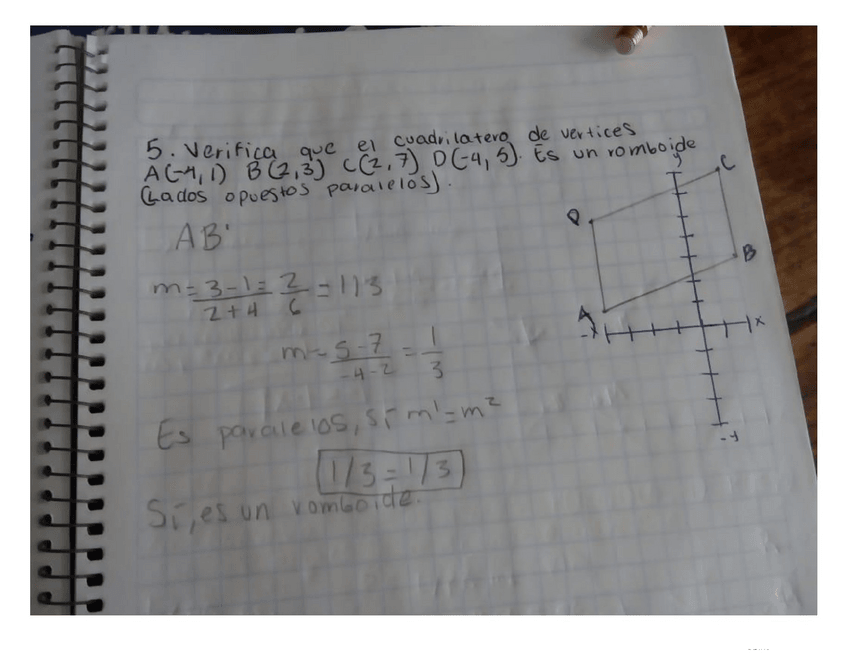 5. Verifica que el cuadrilatero de vertices
A(-4,1) B(2,3) C(2,7) D(-4,5). Es un romboide
(Lados opuestos paralelos).
AB'
m = 3-1 = 2 = 1/3
2+4 6
m = 5-7 = 1
-4-2 3
Es paralelos, Sí m¹=m²
1/3 = 1/3
Sí, es un romboide.
y
C
D
B
A
-x
x
-y